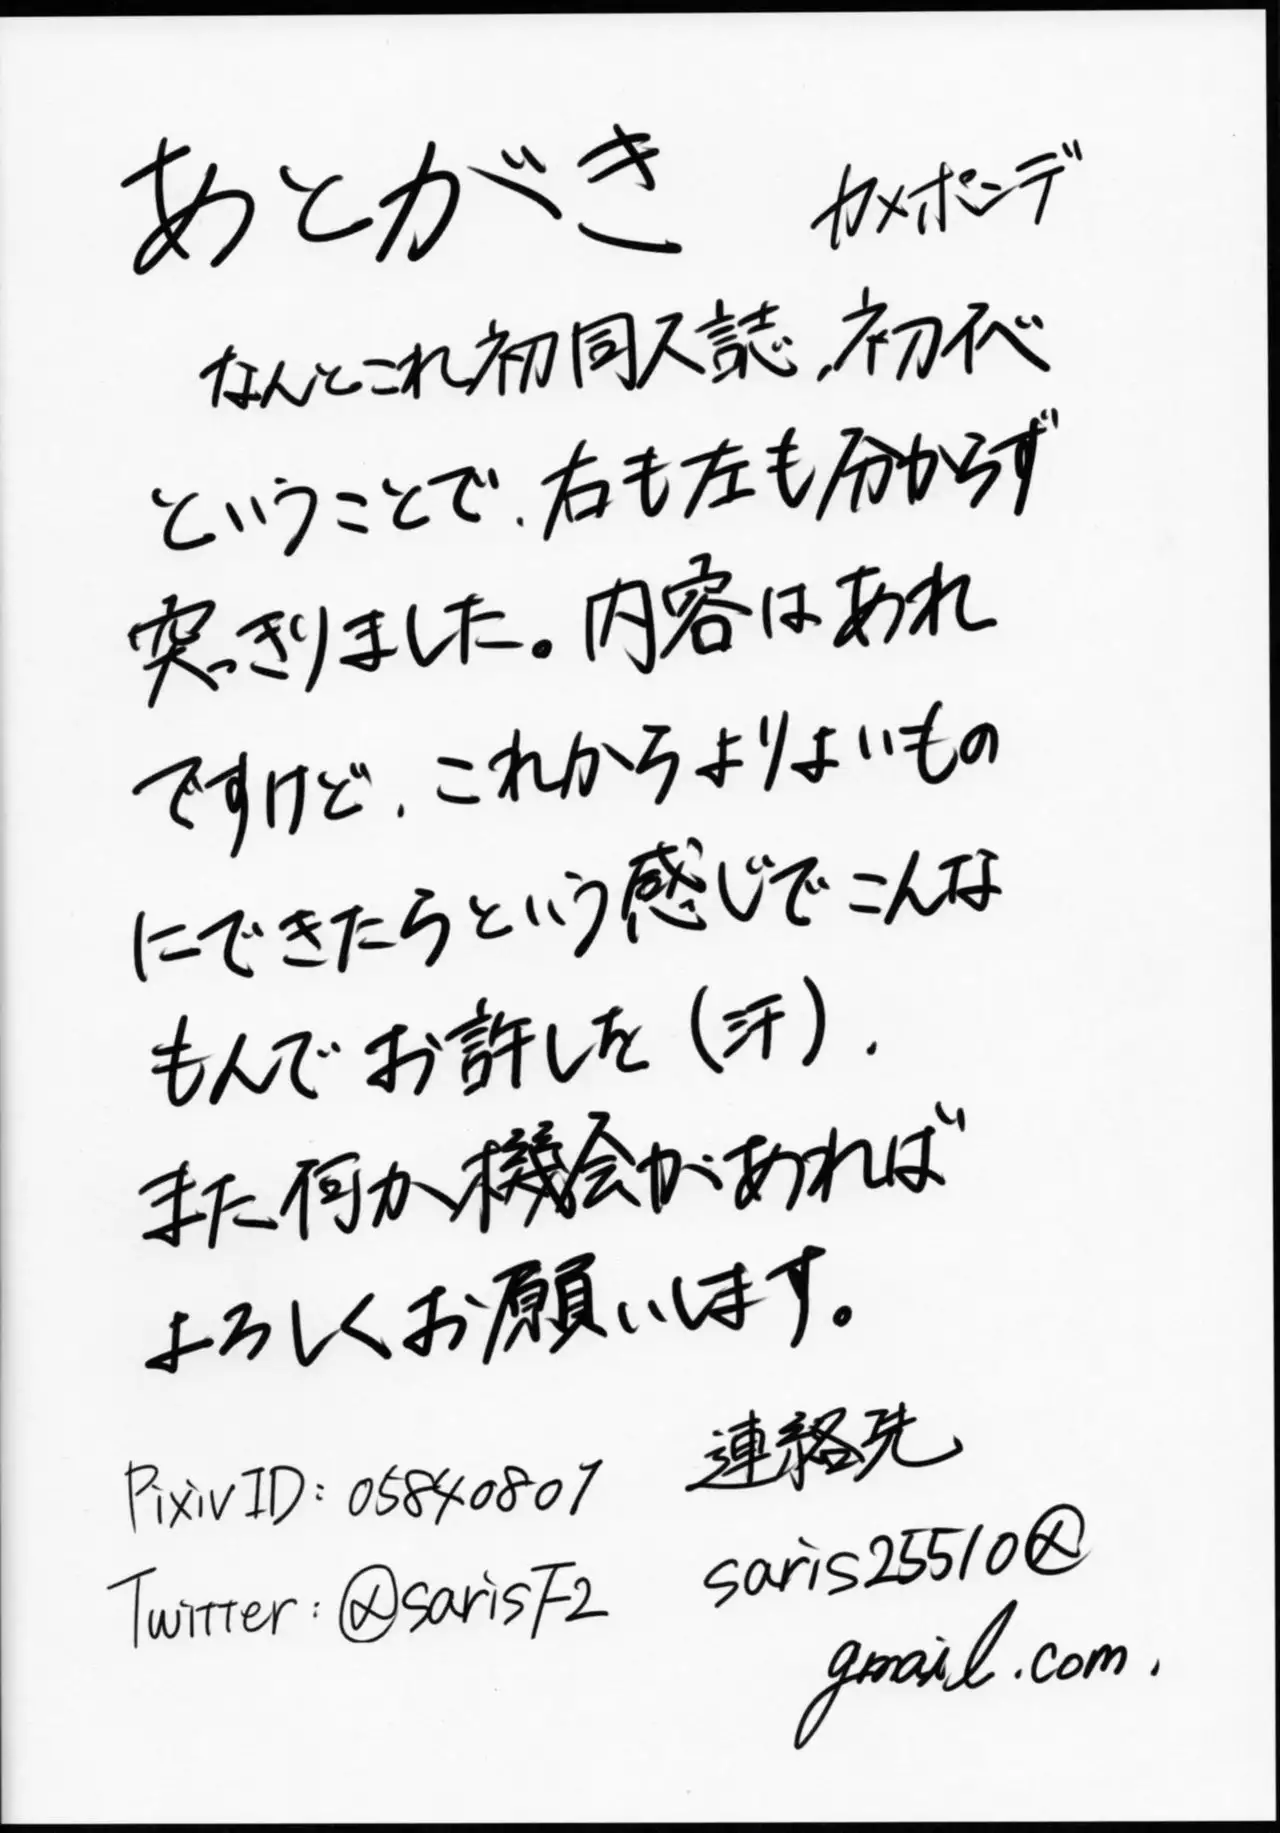 あとがき
カメポンデ
なんとこれ初同人誌、初イベ
ということで、右も左も分からず
突っきりました。内容はあれ
ですけど、これからよりよいもの
にできたらという感じでこんな
もんでお許しを(汗)、
また何か機会があれば
よろしくお願いします。
連絡先
PixivID:05840807
Twitter:@sarisF2
saris25510@
gmail.com.